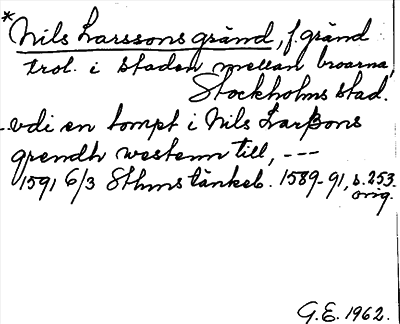 *Nils Larssons gränd, f. gränd
trol. i staden mellan broarna,
Stockholms stad.
--vdi en tompt i Nils Larßons
grendh westenn till, ---
1591 6/3 Sthms tänkeb. 1589-91, s. 253.
orig.
G.E. 1962.